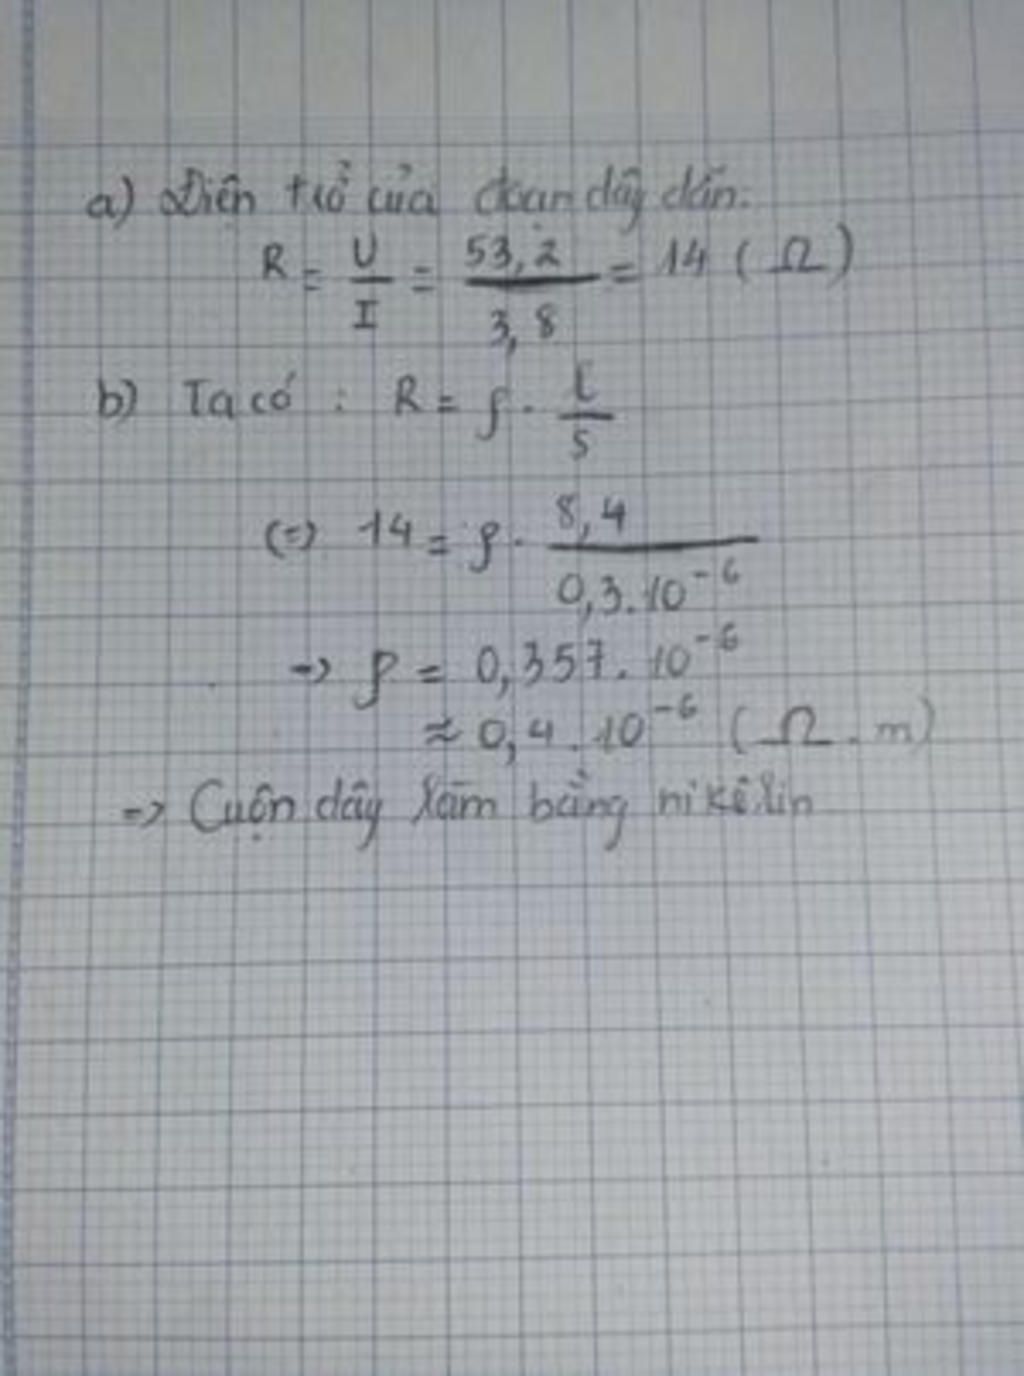 a) Điện trở của đoạn dây dẫn.
R = U/I = 53,2/3,8 = 14 (Ω)
b) Ta có : R = ρ . l/S
(=) 14 = ρ . 8,4/0,3.10⁻⁶
=> ρ = 0,357. 10⁻⁶
≈ 0,4 . 10⁻⁶ (Ω . m)
=> Cuộn dây làm bằng nikêlin